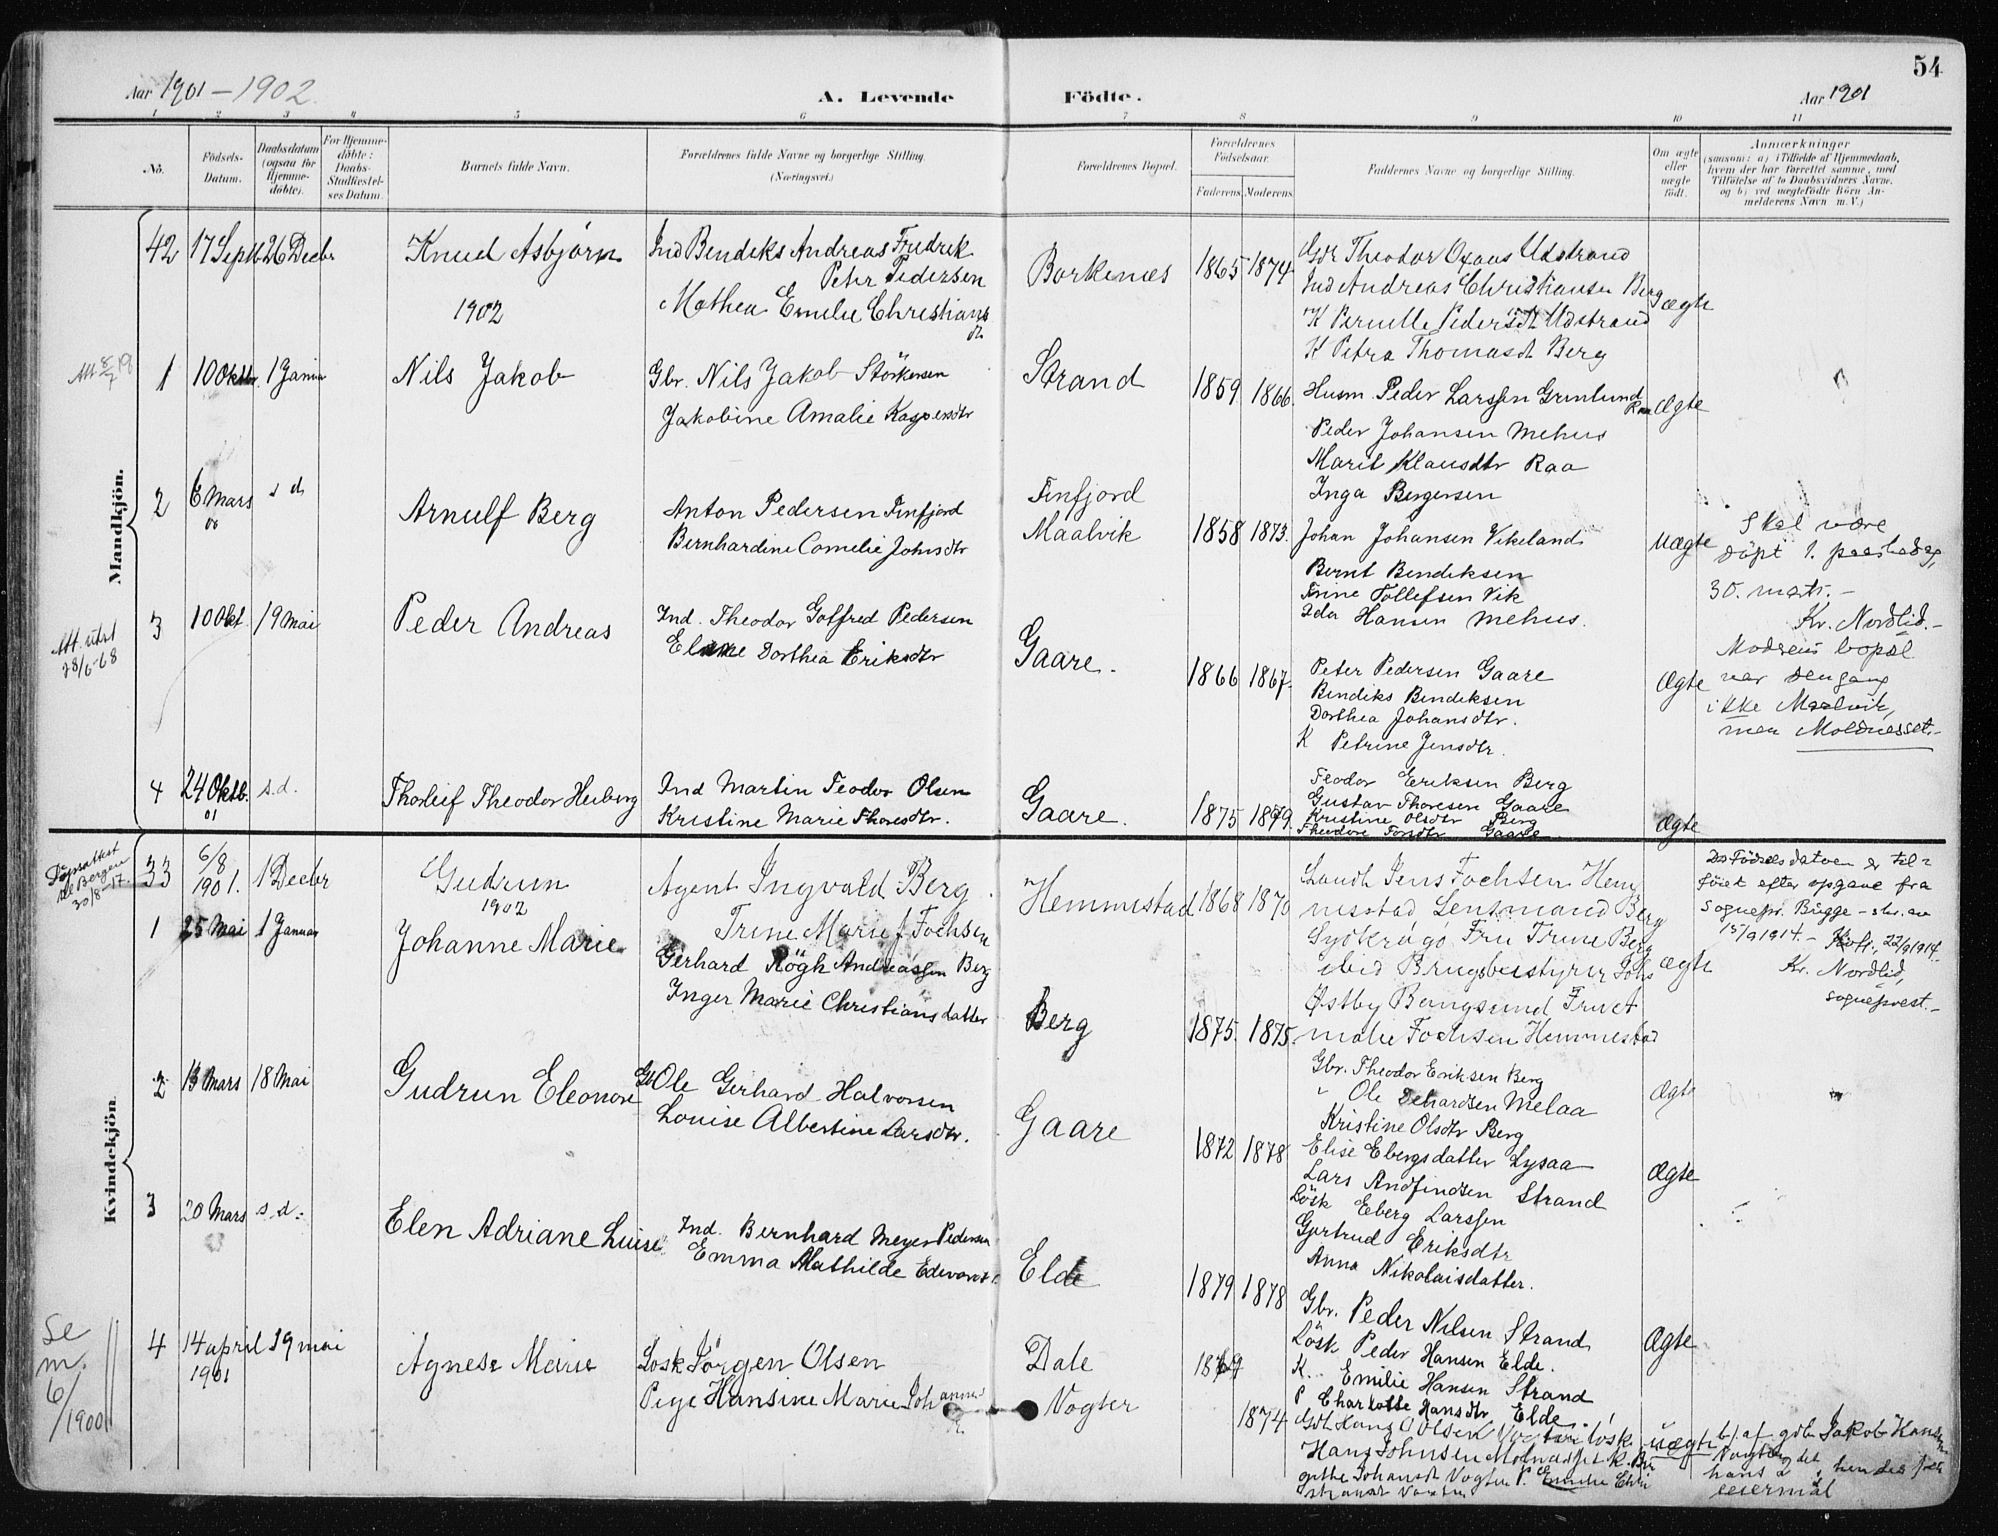 54
Aar 1901 – 1902.
A. Levende Födte.
Aar 1901
1 2 3 4 5 6 7 8 9 10 11
No.
Födsels-
Datum.
Daabsdatum
(ogsaa for
Hjemme-
döbte).
For Hjemme-
döbte:
Daabs-
Stadfæstel-
ses Datum.
Barnets fulde Navn.
Forældrenes fulde Navne og borgerlige Stilling.
(Næringsvei.)
Forældrenes Bopæl.
Forældrenes
Födselsaar.
Faderens. Moderens.
Faddernes Navne og borgerlige Stilling.
Om ægte
eller
uægte
födt.
Anmærkninger
(saasom: a) i Tilfælde af Hjemmedaab,
hvem der har forrettet samme, med
Tilföielse af to Daabsvidners Navne,
og b) ved uægtefödte Börn An-
melderens Navn m. V.)
Mandkjön.
42 17 Septb 26 Decbr Knud Asbjörn Ind Bendeks Andreas Fredrik
Peter Pedersen
Mathea Emelie Christians
dt.
Borkenes 1865 1874
Theodor Udstrand
Ind Andreas Christiansen Berg
K Pernelle Pedersdt Udstrand
K Petra Thomasdt Berg
ægte
1902
1 10 Oktbr. 1 Januar Nils Jakob Gbr. Nils Jakob Störkersen
Jakobine Amalie Kaspersdtr
Strand 1859 1866.
Husm. Peder Larssen Grønlund
Raa
Peder Johansen Mehus
Marit Klausdtr Raa
Inga Bergersen
Ægte
2 6 Mars s d Arnulf Berg Anton Pedersen Finfjord
Bernhardine Cornelie Johnsdtr
Finfjord
Maalvik 1858 1873.
Johan Johansen Vikeland
Bernt Bendeksen
Trine Tollefsen Vik
Ida Hansen Mehus.
Uægte
Skal være
döpt 1. paaskedag,
30. mars. –
Kr. Nordlid. –
Modrens bopæl
var dengang
ikke Maalvik,
men Moldnesset. –
Att. utst
28/6-68
3 10 Okt. 19 Mai Peder Andreas Ind. Theodor Gotfred Pedersen
Dorthea Eriksdtr
Gaare. 1866 1867.
Peter Pedersen Gaare
Bendiks Bendiksen
Dorthea Johansdtr.
K Petrine Jensdtr.
Ægte
4 24 Oktb. s.d. Thorleif Theodor Heiberg
01
Ind Martin Teodor Olsen
Kristine Marie Thoresdtr.
Gaare. 1875 1879.
Teodor Eeriksen Berg
Gustav Thoresen Gaare
Kristine Olsdtr Berg
Gaare.
Ægte
Kvindekjön.
Döpsattest
til Bergen
30/8-17.
33 6/8 1901. 1 Decbr Gudrun Agent Ingvald Berg
Trine Marie f Fochsen
Hemmestad 1868 1870
Landh Jens Fochsen Hem
mestad Lensmand Berg
Fru Trine Berg
ibid Brugsbestyrer
Østby Bangsund
Fochsen Hemmestad
ægte
Födselsdatoen er til-
föiet efter opgave fra
sognepr. Bügge – skr. av
15/9 1914. – 22/9 1914.
Kr. Nordlid,
sogneprest. –
1902
1 25 Mai 1 Januar Johanne Marie Gerhard Rögh Andreassen Berg
Inger Marie Christiansdatter
Berg 1875. 1875.
Gbr. Theodor Eriksen Berg
" Ole Melaa
Kristine Olsdtr Berg
Elise Ebergsdatter Lysaa
Ægte
2 13 Mars 18 Mai Gudrun Eleonore Gb Ole Gerhard Halvorsen
Louise Albertine Larsdtr.
Gaare 1872 1878
Lars Andfindsen Strand
Lösk Eberg Larssen
Gjertrud Eriksdtr
Anna Nikolaisdatter.
Ægte
3 20 Mars s.d. Elen Adriane Luise Ind. Bernhard Meyer Pedersen
Emma Mathilde
Elde 1879 1878
Gbr. Peder Nilsen Strand
Lösk Peder Hansen Elde.
K. Emilie Hansen Strand
P Charlotte Hansdtr Elde.
Ægte
Se
m.
6/1900
4 14 april 1901 19 mai Agnese Marie Losk Jörgen Olsen
Pige Hansine Marie Johannes
Dale
Vogter 1874
Olsen
Hans Johnsen
Vogter P. Emelie Chri
uægte
b/ af gdb Jakob Hansen
Vogter, det
hans 2, hendes
leiermål